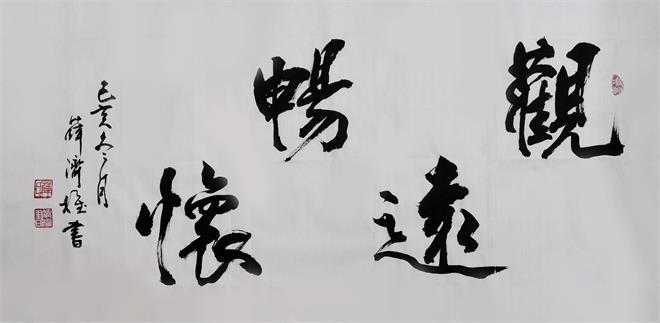 觀遠暢懷
己亥冬月
薛濟雄書